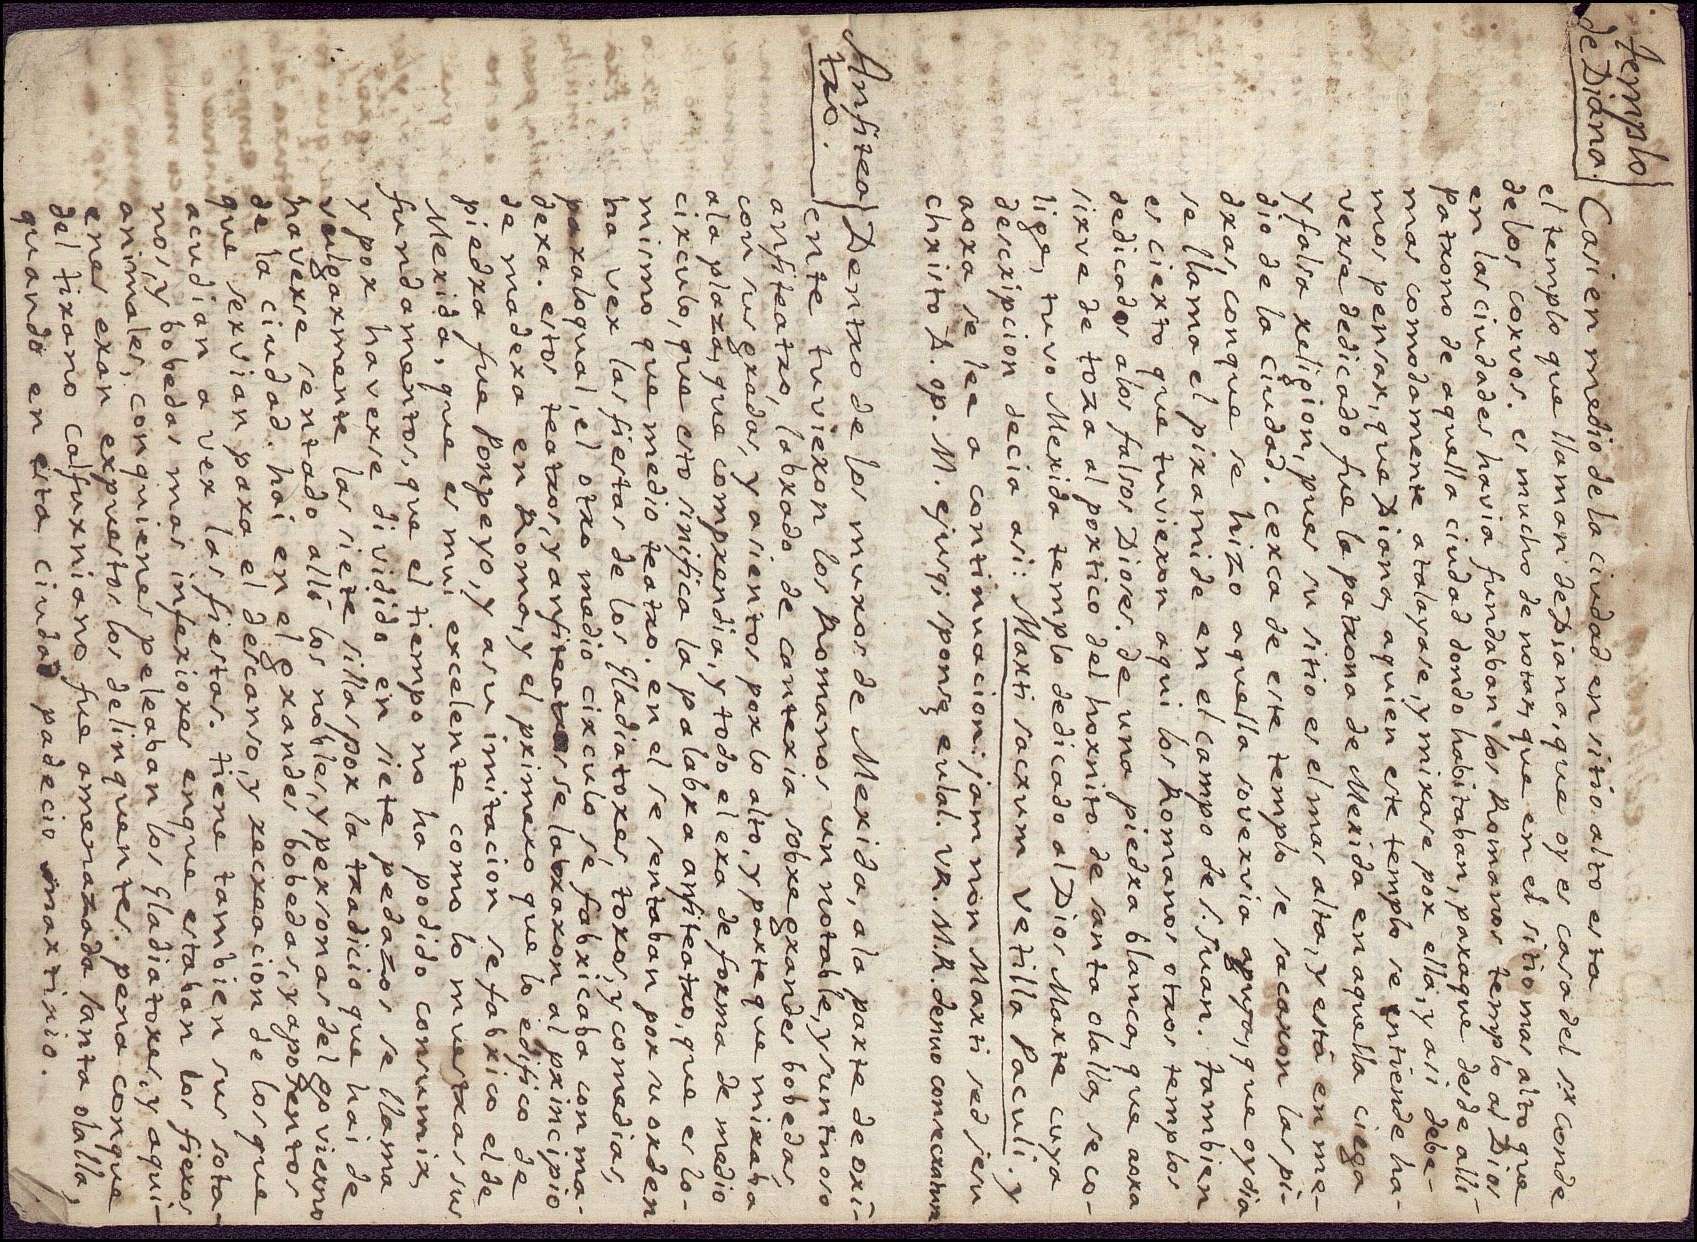 templo
de Diana.
Casi en medio de la ciudad en sitio alto esta
el templo que llaman de Diana, que oy es casa del sr. conde
de los corvos. es mucho de notar, que en el sitio mas alto que
en las ciudades havia fundaban los Romanos templo al Dios
patrono de aquella ciudad donde habitaban, paraque desde alli
mas comodamente atalayase, y mirase por ella, y asi debe-
mos pensar, que Diana, aquien este templo se entiende ha-
verse dedicado fue la patrona de Merida en aquella ciega
y falsa religion, pues su sitio es el mas alto, y está en me-
dio de la ciudad. cerca de este templo se sacaron las pi-
dras, conque se hizo aquella sovervia aguja, que oydia
se llama el piramide en el campo de s. Juan. tambien
es cierto que tuvieron aqui los Romanos otros templos
dedicados alos falsos Dioses. de una piedra blanca, que aora
sirve de toza al portico del hornito de santa olalla, se co-
lige, tuvo Merida templo dedicado al Dios Marte cuya
descripcion decia asi: Marti sacrum vetilla Paculi. y
aora se lee a continuacion: jam non Marti sed jesu
christo D. op. M. ejusq; sponsę eulal. vr. M.R. denuo consecratum
Anfitea
tro.
Dentro de los muros de Merida, ala parte de ori-
ente tuvieron los Romanos un notable, y suntuoso
anfiteatro, labrado de canteria sobre grandes bobedas,
con sus gradas, y asientos por lo alto, y parte que miraba
ala plaza, que comprendia, y todo el era de forma de medio
circulo, que esto sinifica la palabra anfiteatro, que es lo-
mismo que medio teatro. en el se sentaban por su orden
ha ver las fiestas de los Gladiatores, toros, y comedias,
para loqual, el otro medio circulo se fabricaba con ma-
dera. estos teatros, y anfiteatros se labraron al principio
de madera en Roma, y el primero que lo edifico de
piedra fue Pompeyo, y asu imitacion se fabrico el de
Merida, que es mui excelente como lo muestran sus
fundamentos, que el tiempo no ha podido consumir,
y por haverse dividido en siete pedazos se llama
vulgarmente las siete sillas por la tradicio que hai de
haverse sentado alli los nobles, y personas del govierno
de la ciudad. hai en el grandes bobedas, y aposentos
que servian para el descanso, y recreacion de los que
acudian a ver las fiestas. tiene tambien sus sota-
nos, y bobedas mas inferiores enque estaban los fieros
animales, conquienes peleaban los Gladiatores, y aqui-
enes eran expuestos los delinquentes. pena conque
del tirano calfurniano fue amenazada santa olalla,
quando en esta ciudad padecio martirio.